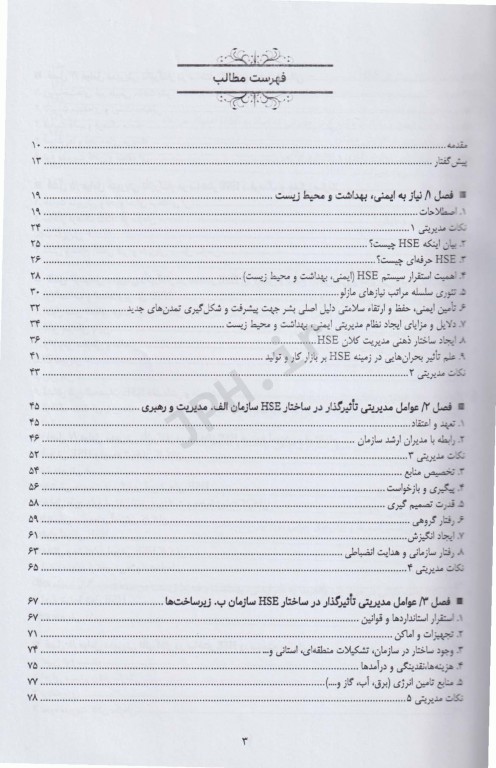 فهرست مطالب
مقدمه ........ ۱۰
پیش‌گفتار ........ ۱۳
■ فصل ۱/ نیاز به ایمنی، بهداشت و محیط زیست ........ ۱۹
۱. اصطلاحات ........ ۱۹
نکات مدیریتی ۱ ........ ۲۴
۲. بیان اینکه HSE چیست؟ ........ ۲۵
۳. HSE حرفه‌ای چیست؟ ........ ۲۶
۴. اهمیت استقرار سیستم HSE (ایمنی، بهداشت و محیط زیست) ........ ۲۸
۵. تئوری سلسله مراتب نیازهای مازلو ........ ۳۰
۶. تأمین ایمنی، حفظ و ارتقاء سلامتی دلیل اصلی بشر جهت پیشرفت و شکل‌گیری تمدن‌های جدید ........ ۳۲
۷. دلایل و مزایای ایجاد نظام مدیریتی ایمنی، بهداشت و محیط زیست ........ ۳۴
۸. ایجاد ساختار ذهنی مدیریت کلان HSE ........ ۳۶
۹. علم تأثیر بحران‌هایی در زمینه HSE بر بازار کار و تولید ........ ۴۱
نکات مدیریتی ۲ ........ ۴۳
■ فصل ۲/ عوامل مدیریتی تأثیرگذار در ساختار HSE سازمان الف. مدیریت و رهبری ........ ۴۵
۱. تعهد و اعتقاد ........ ۴۵
۲. رابطه با مدیران ارشد سازمان ........ ۴۶
نکات مدیریتی ۳ ........ ۵۲
۳. تخصیص منابع ........ ۵۴
۴. پیگیری و بازخواست ........ ۵۶
۵. قدرت تصمیم گیری ........ ۵۸
۶. رفتار گروهی ........ ۵۹
۷. ایجاد انگیزش ........ ۶۱
۸. رفتار سازمانی و هدایت انضباطی ........ ۶۳
نکات مدیریتی ۴ ........ ۶۵
■ فصل ۳/ عوامل مدیریتی تأثیرگذار در ساختار HSE سازمان ب. زیرساخت‌ها ........ ۶۷
۱. استقرار استانداردها و قوانین ........ ۶۷
۲. تجهیزات و اماکن ........ ۷۱
۳. وجود ساختار در سازمان، تشکیلات منطقه‌ای، استانی و... ........ ۷۴
۴. هزینه‌ها،نقدینگی و درآمدها ........ ۷۵
۵. منابع تامین انرژی (برق، آب، گاز و....) ........ ۷۷
نکات مدیریتی ۵ ........ ۷۸
۳
JPH.ir